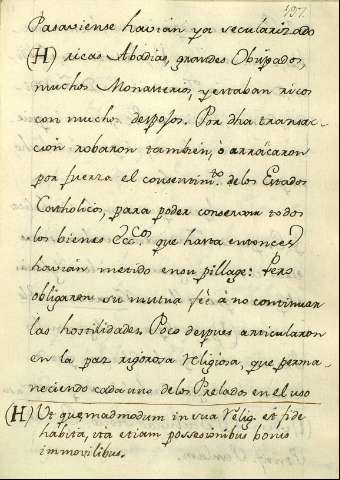 197.
Pasaviense havian ya secularizado
(H) ricas Abadias, grandes Obispados,
muchos Monasterios, y estaban ricos
con mucho despojos. Por dha transac-
cion robaron tambien, ò arrãcaron
por fuerza el consentimto. de los Estados
Catholicos, para poder conservar todos
los bienes Eccos. que hasta entonces
havian metido en su pillage: Pero
obligaron su mutua feè à no continuar
las hostilidades. Poco despues articularon
en la paz rigorosa religiosa, que perma-
neciendo cada uno de los Prelados en el uso
(H) Ut quemadmodum in sua Relig. et fide
habita, ita etiam possesionibus bonis
immovilibus.